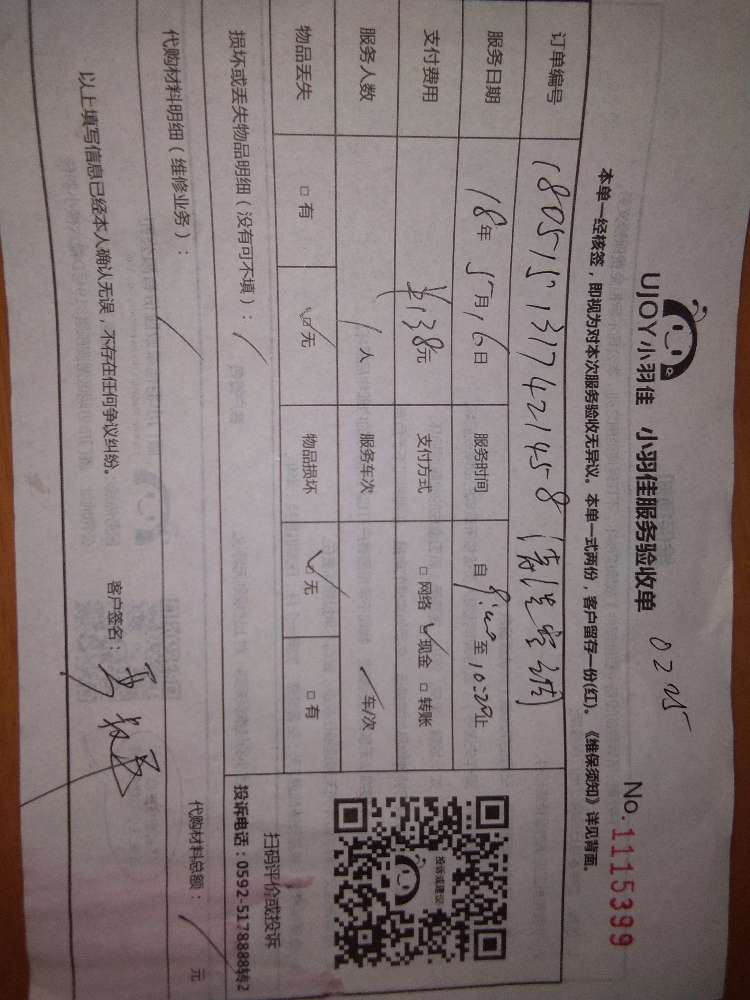 UJOY小羽佳 小羽佳服务验收单
No.1115399
本单一经核签，即视为对本次服务验收无异议。本单一式两份，客户留存一份(红)。《维保须知》详见背面。
订单编号 1805151317421458
服务日期 18年5月16日 服务时间 自 至10:20止
支付费用 ¥138元 支付方式 □网络 ☑现金 □转账
服务人数 1人 服务车次 车/次
物品丢失 □有 ☑无 物品损坏 ☑无 □有
损坏或丢失物品明细（没有可不填）：
代购材料明细（维修业务）：
代购材料总额： 元
以上填写信息已经本人确认无误，不存在任何争议纠纷。
客户签名：
投诉或建议
扫码评价或投诉
投诉电话：0592-5178888转2